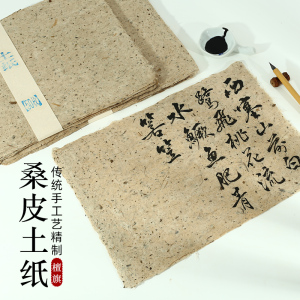 西塞山前白
鷺飛桃花流
水鱖魚肥青
箬笠
传统手工艺精制
檀旗
桑皮土纸